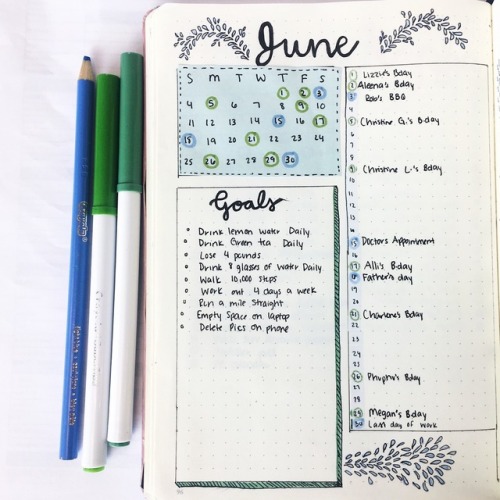 June
S M T W T F S
1 2 3
4 5 6 7 8 9 10
11 12 13 14 15 16 17
18 19 20 21 22 23 24
25 26 27 28 29 30
Goals
Drink lemon water Daily
Drink Green tea Daily
Lose 4 pounds
Drink 8 glasses of water Daily
Walk 10,000 steps
Work out 4 days a week
Run a mile straight
Empty Space on laptop
Delete Pics on phone
1 Lizzie's Bday
2 Aleena's Bday
3 Rob's BBQ
4
5 Christine G.'s Bday
6
7
8
9 Christine L.'s Bday
10
11
12
13
14
15 Doctors Appointment
16
17 Alli's Bday
18 Father's day
19
20
21 Charlene's Bday
22
23
24
25
26 Bday
27
28
29 Megan's Bday
30 Last day of work